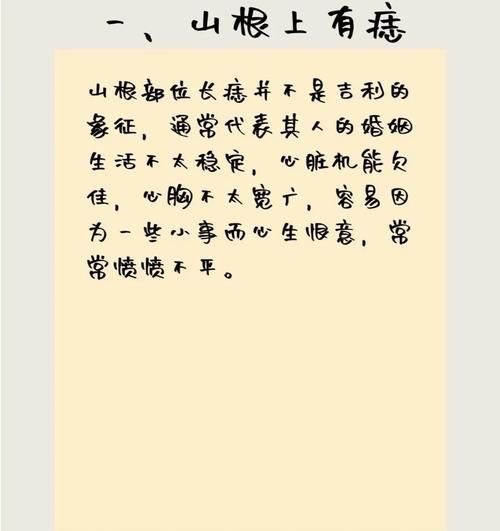 一、山根上有痣
山根部位长痣并不是吉利的
象征，通常代表其人的婚姻
生活不太稳定，心脏机能欠
佳，心胸不太宽广，容易因
为一些小事而心生恨意，常
常愤愤不平。